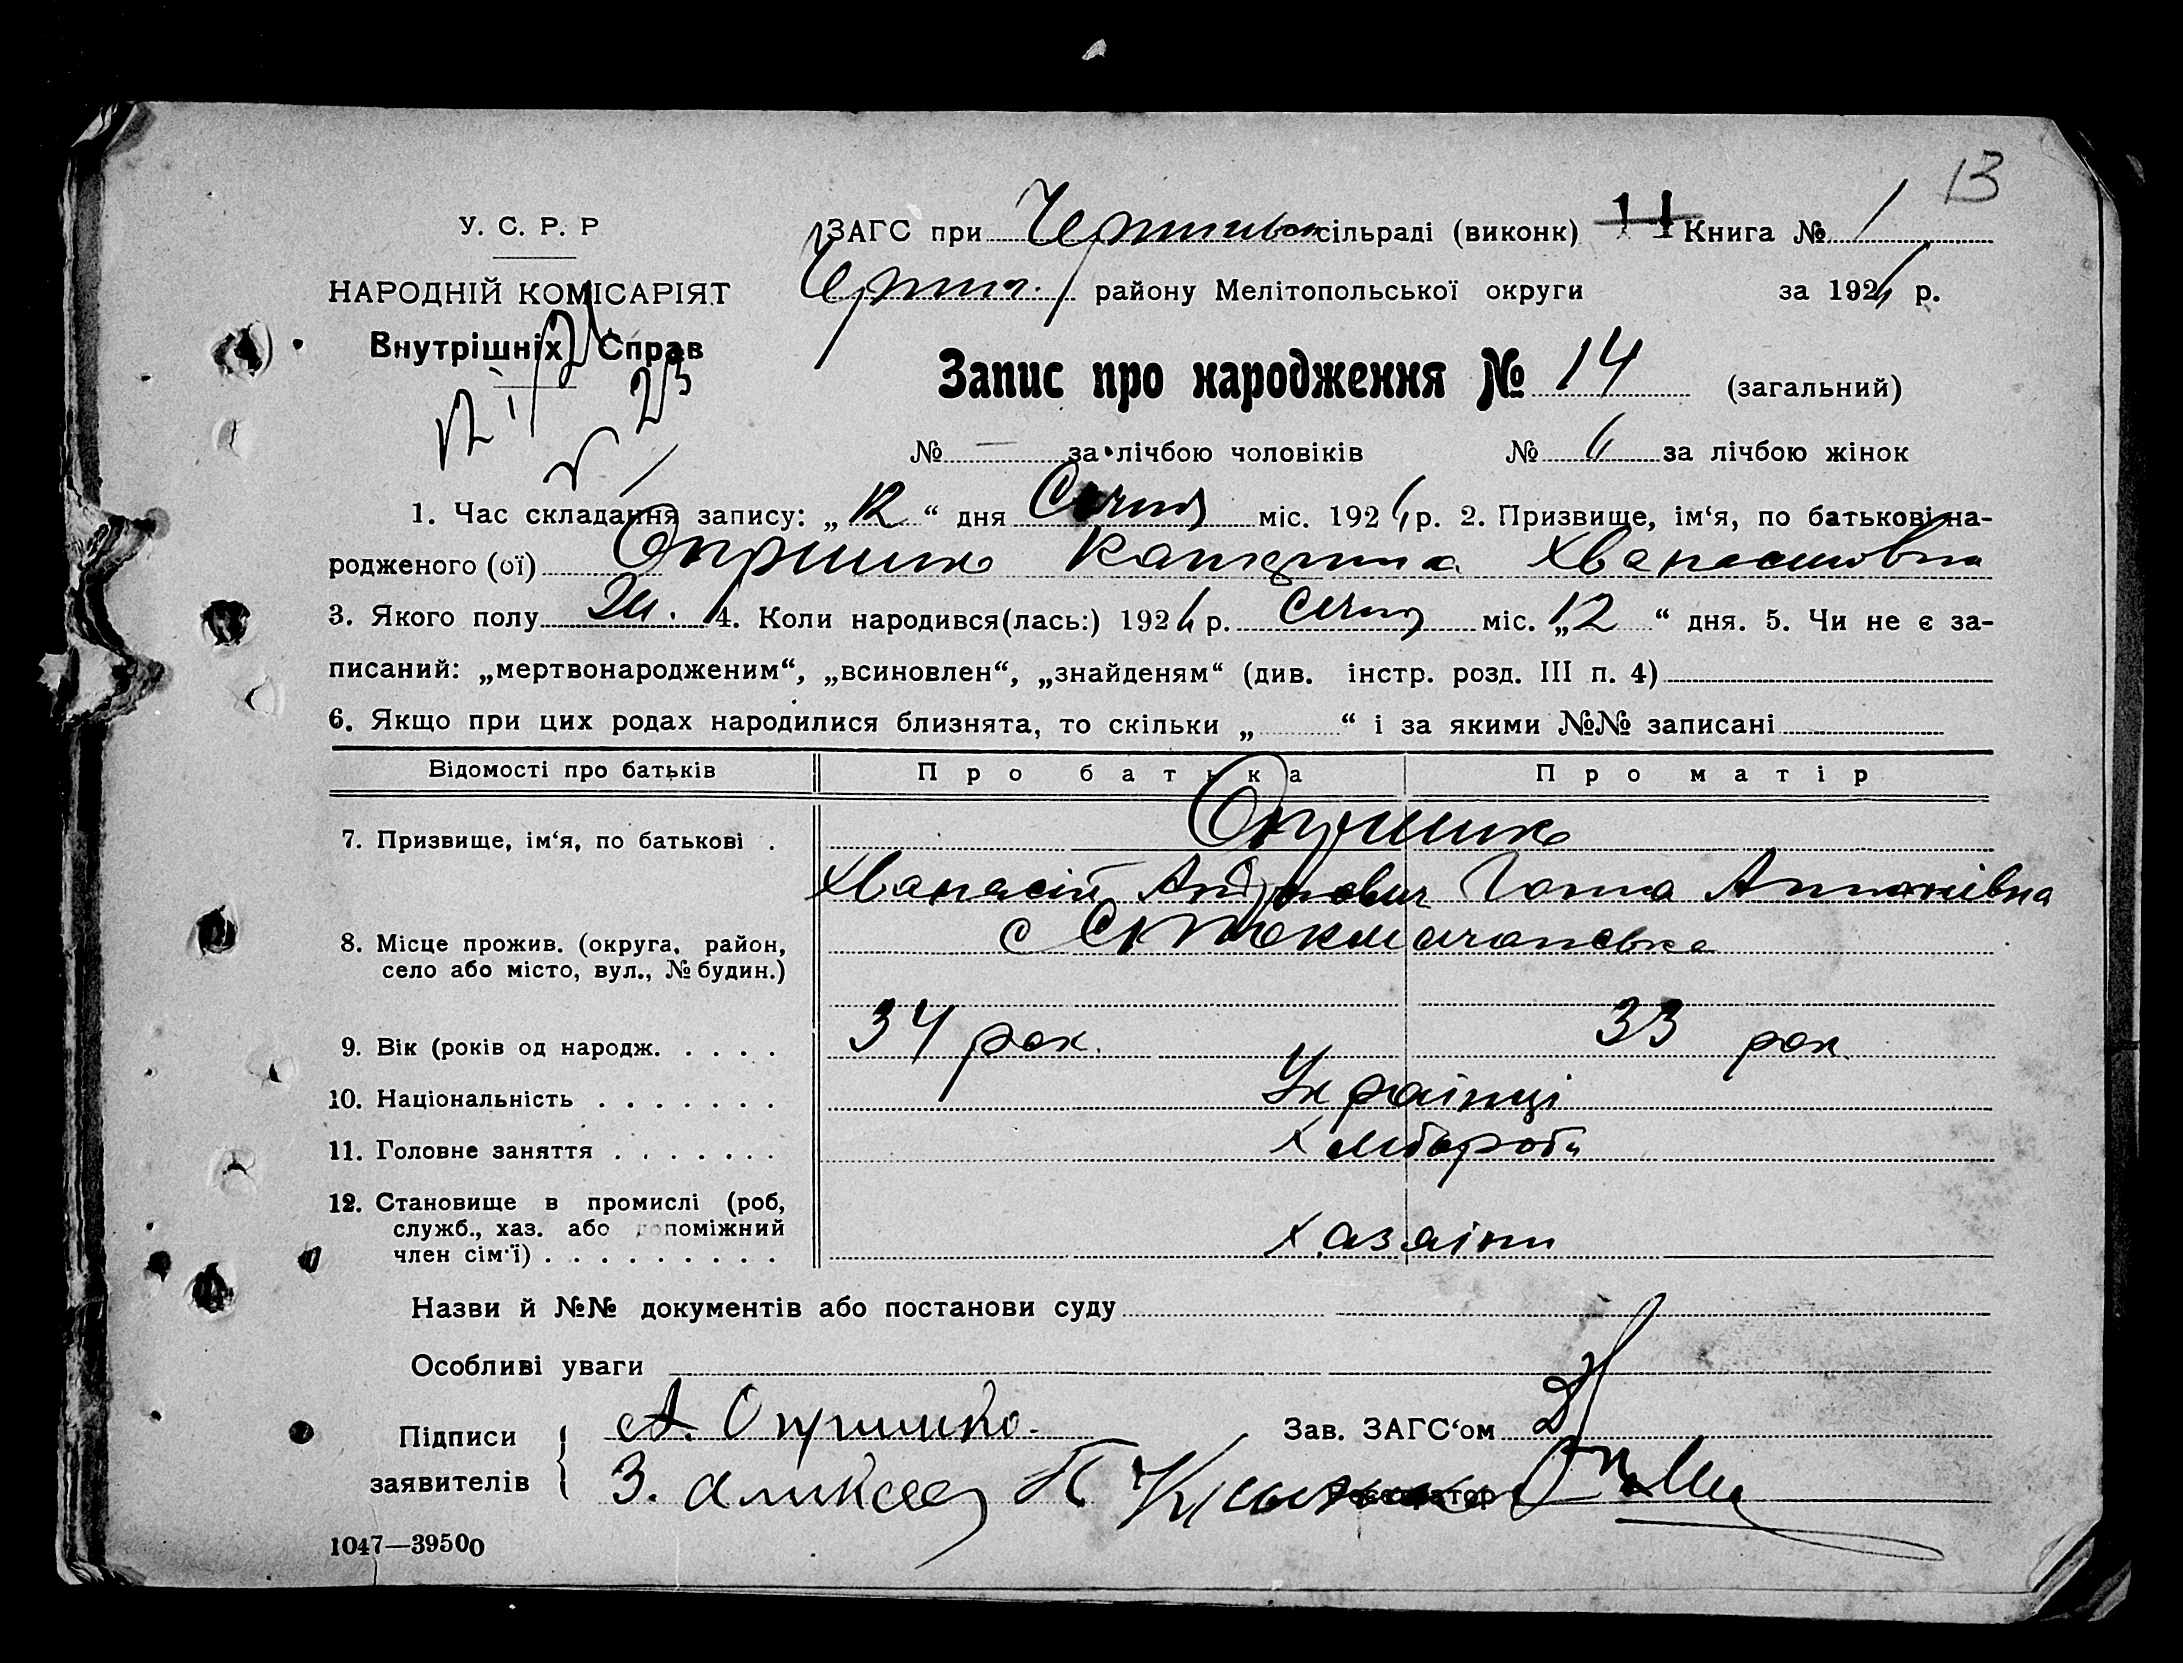 13
У. С. Р. Р
НАРОДНІЙ КОМІСАРІЯТ
Внутрішніх Справ
ЗАГС при сільраді (виконк) 11 Книга № 1
району Мелітопольської округи за 192 р.
Запис про народження № 14 (загальний)
№ — за лічбою чоловіків № 6 за лічбою жінок
1. Час складання запису: „12“ дня Січня міс. 192 р. 2. Призвище, ім‘я, по батькові на-
родженого (ої) Опришко Катерина Хванасиовна
3. Якого полу 4. Коли народився(лась:) 192 р. Січня міс. „12“ дня. 5. Чи не є за-
писаний: „мертвонародженим“, „всиновлен“, „знайденям“ (див. інстр. розд. III п. 4)
6. Якщо при цих родах народилися близнята, то скільки „ “ і за якими №№ записані
Відомості про батьків Про батька Про матір
7. Призвище, ім‘я, по батькові . Опришко
Хванасій Андрієвич Ганна Антонівна
8. Місце прожив. (округа, район,
село або місто, вул., № будин.)
9. Вік (років од народж. . . . . 34 рок. 33 рок.
10. Національність . . . . . . . Українці
11. Головне заняття . . . . . . . Хлібороби
12. Становище в промислі (роб,
служб., хаз. або допоміжний
член сім‘ї) . . . . . . . . . Хазаіни
Назви й №№ документів або постанови суду
Особливі уваги
Підписи А. Опришко. Зав. ЗАГС‘ом
заявителів З.
1047—39500